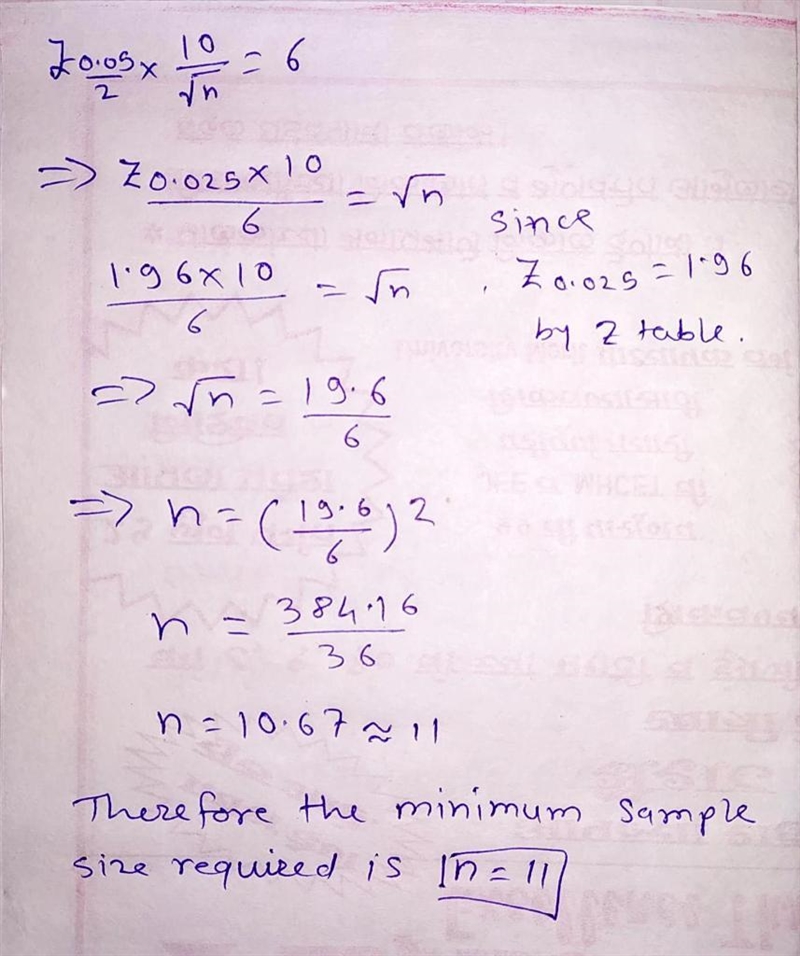 Z0.05/2 × 10/√n = 6
=> Z0.025 × 10 / 6 = √n
since
1.96×10 / 6 = √n , Z0.025 = 1.96
by Z table.
=> √n = 19.6 / 6
=> n = (19.6 / 6)2
n = 384.16 / 36
n = 10.67 ≈ 11
Therefore the minimum sample
size required is n = 11